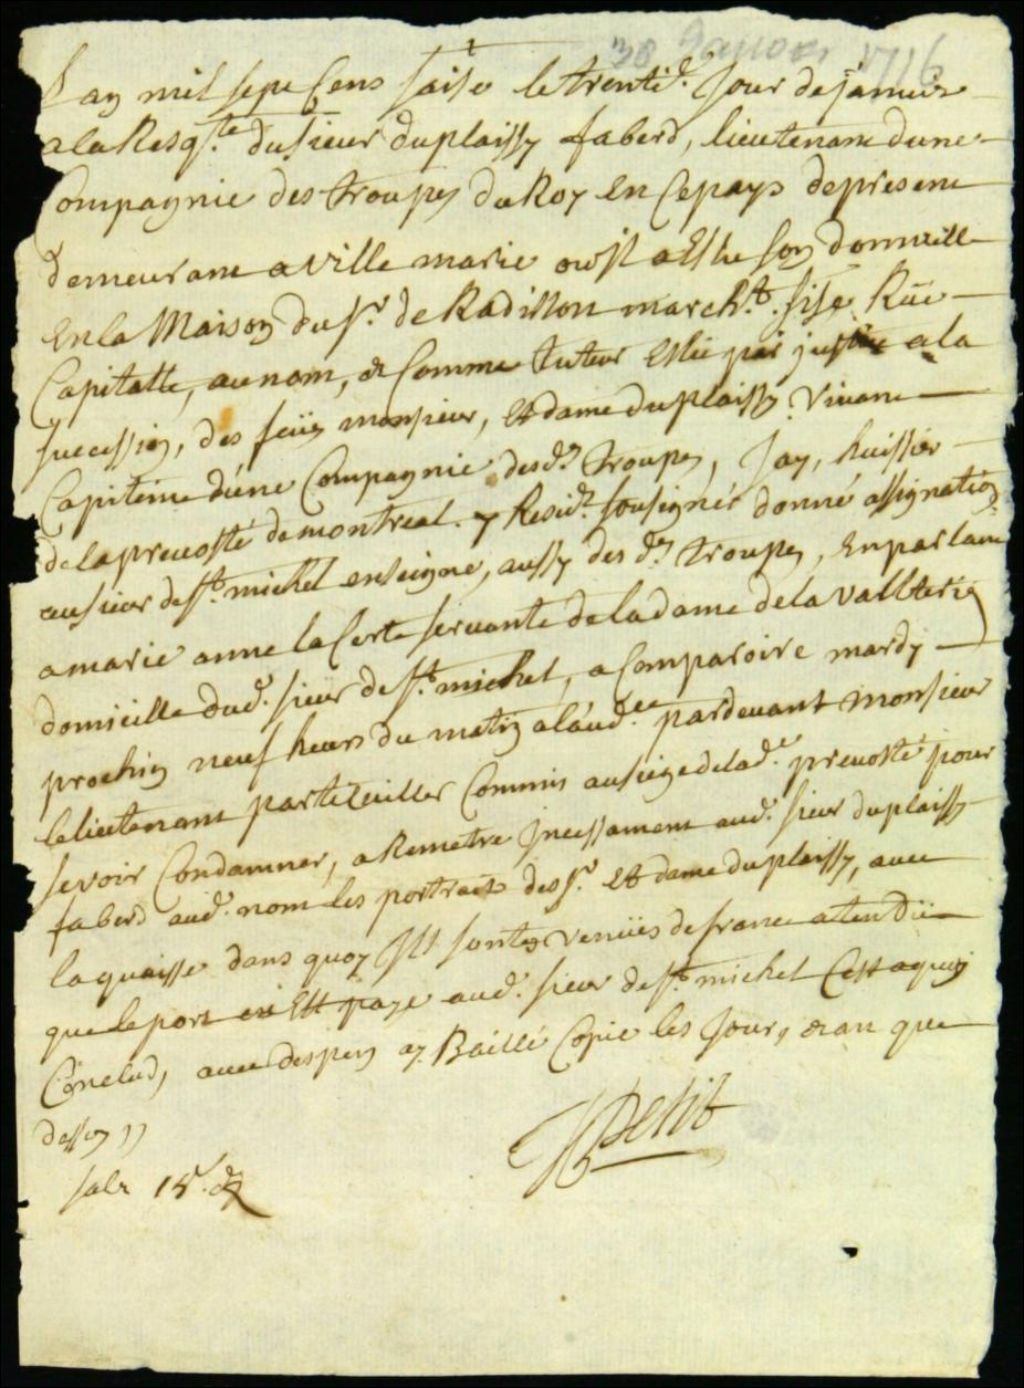 30 Janvier 1716
L an mil sept Cens saise le trenti.e Jour de janvier
a la Resq.te du sieur duplaissy faberd, lieutenant dune
Compagnie des troupes du Roy En Ce pays de present
demeurant a Ville marie ou Il a Eslu son domicille
En la Maison du s.r de Radisson march.t sise Rüe
Capitalle, au nom, & Comme tuteur Eslu par justice a la
succession, des feüs monsieur, Et dame duplaissy vivant
Capiteine d'une Compagnie desd.s troupes, Jay, huissier
de la prevosté de montreal y Resid.t sousigner donné assignation
au sieur de s.t michel enseigne, aussy des d.s troupes, En parlant
a marie anne la Certe servante de la dame de la Vallterie
domicille dud. sieur de s.t michel, a Comparoire mardy
prochin neuf heurs du matin a l'aud.ce pardevant monsieur
le lieutenant partequillier Commis au siege de lad.e prevosté pour
se voir Condamner, a Remetre Incessament aud. sieur duplaissy
faberd aud. nom les portraits des s.r Et dame duplaissy, avec
la quaisse dans quoy Ils sont venües de france atendü
que le port en Est paye aud. sieur de s.t michel Cest a quoy
Conclud, avec despens ay Baillé Copie les Jour, & an que
dessus
Petit
sale 15.s